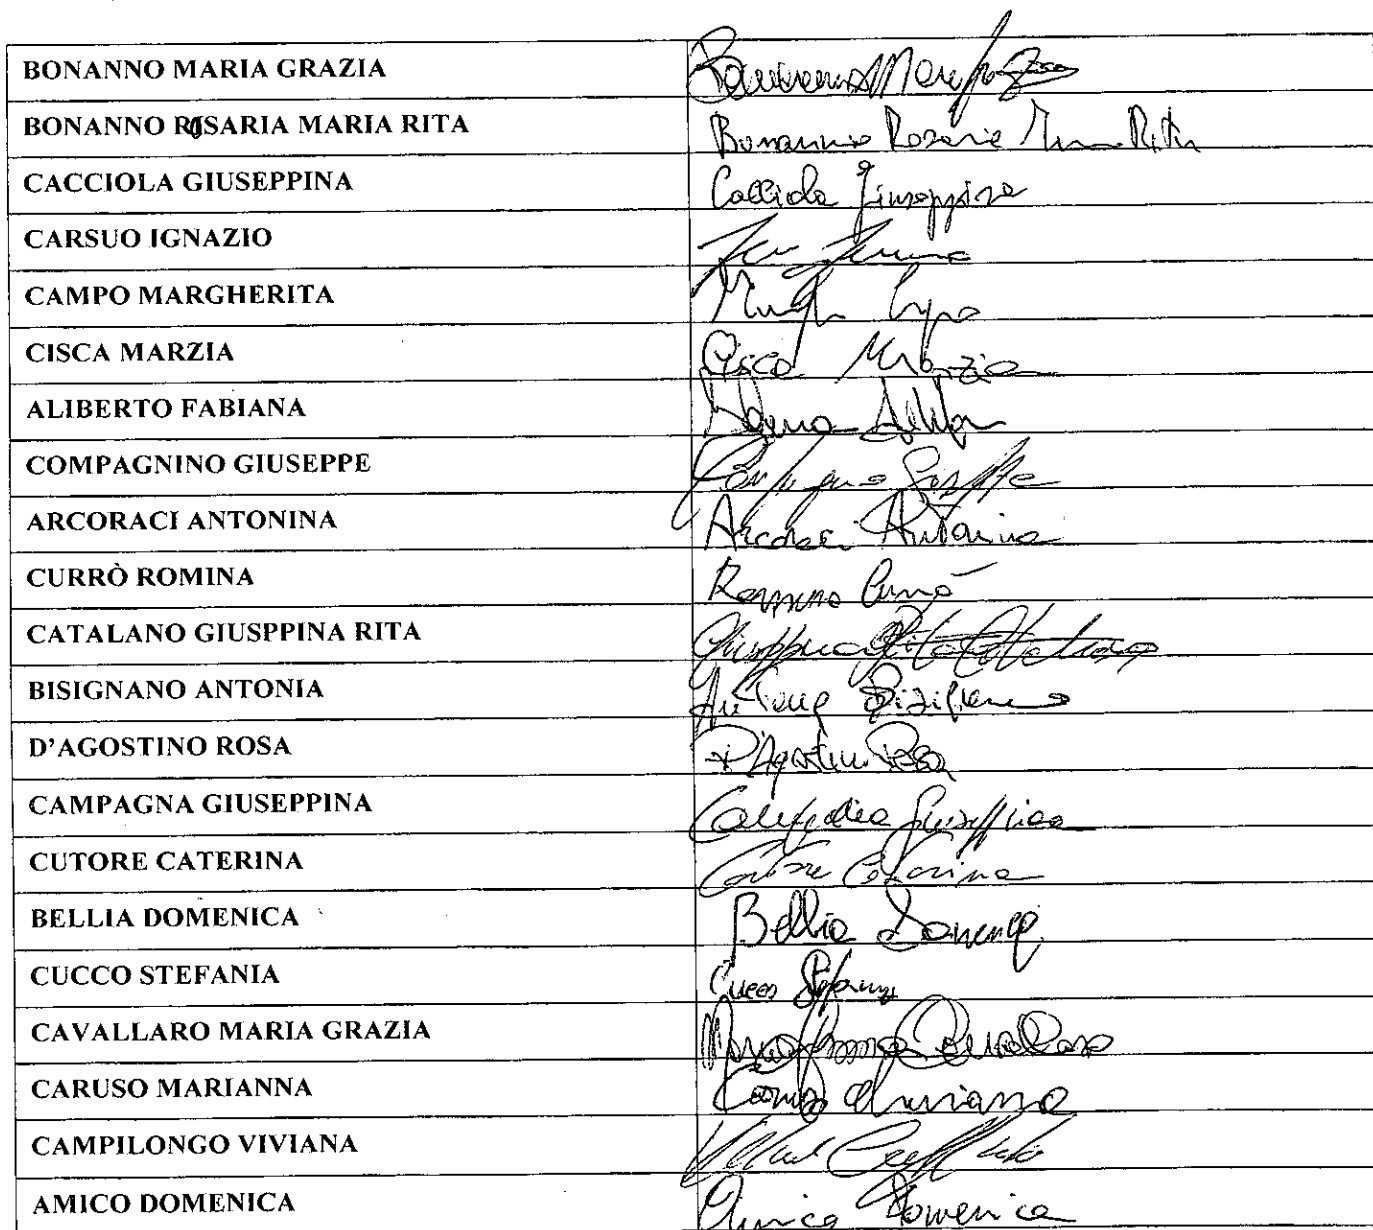 BONANNO MARIA GRAZIA
BONANNO ROSARIA MARIA RITA Bonanno Rosaria Maria Rita
CACCIOLA GIUSEPPINA Cacciola Giuseppina
CARSUO IGNAZIO
CAMPO MARGHERITA
CISCA MARZIA Cisca Marzia
ALIBERTO FABIANA
COMPAGNINO GIUSEPPE
ARCORACI ANTONINA Arcoraci Antonina
CURRÒ ROMINA Romina Currò
CATALANO GIUSPPINA RITA Giuseppina Rita Catalano
BISIGNANO ANTONIA Antonia Bisignano
D'AGOSTINO ROSA D'Agostino Rosa
CAMPAGNA GIUSEPPINA Campagna Giuseppina
CUTORE CATERINA Cutore Caterina
BELLIA DOMENICA Bellia Domenica
CUCCO STEFANIA Cucco Stefania
CAVALLARO MARIA GRAZIA Maria Grazia Cavallaro
CARUSO MARIANNA Caruso Marianna
CAMPILONGO VIVIANA
AMICO DOMENICA Amico Domenica